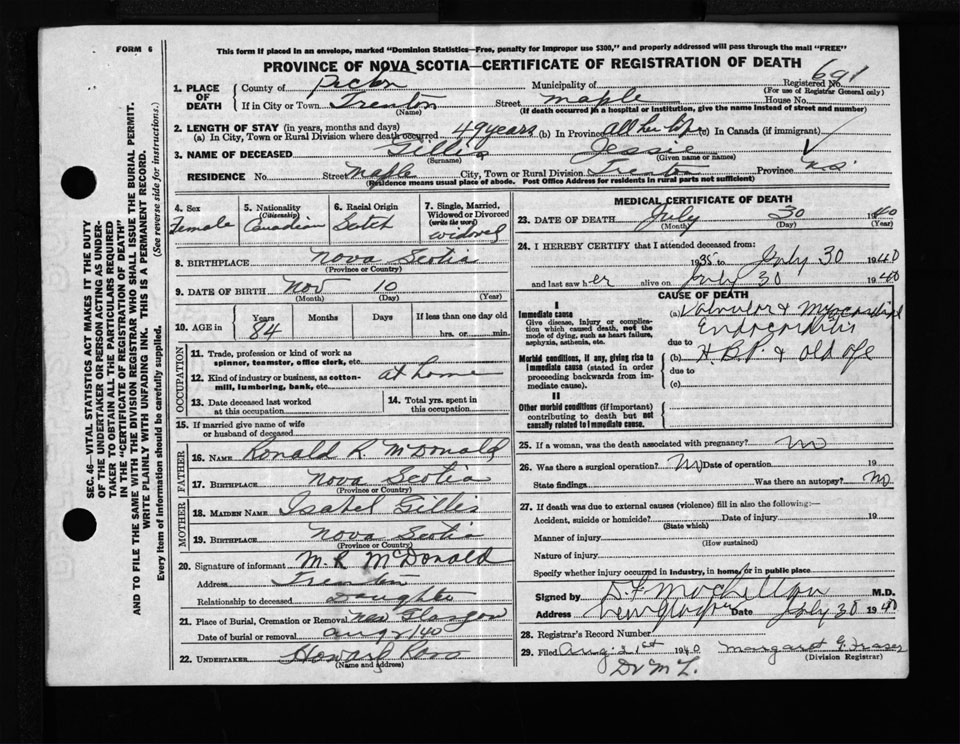 FORM 6
This form if placed in an envelope, marked "Dominion Statistics—Free, penalty for improper use $300," and properly addressed will pass through the mail "FREE"
PROVINCE OF NOVA SCOTIA—CERTIFICATE OF REGISTRATION OF DEATH
SEC. 46—VITAL STATISTICS ACT MAKES IT THE DUTY
OF THE UNDERTAKER OR PERSON ACTING AS UNDER-
TAKER TO OBTAIN ALL THE PARTICULARS REQUIRED
IN THE "CERTIFICATE OF REGISTRATION OF DEATH"
AND TO FILE THE SAME WITH THE DIVISION REGISTRAR WHO SHALL ISSUE THE BURIAL PERMIT.
WRITE PLAINLY WITH UNFADING INK. THIS IS A PERMANENT RECORD.
Every item of information should be carefully supplied. (See reverse side for instructions.)
1. PLACE OF DEATH County of Pictou Municipality of Registered No. 691
(For use of Registrar General only)
If in City or Town Trenton Street Maple House No.
(Name) (If death occurred in a hospital or institution, give the name instead of street and number)
2. LENGTH OF STAY (in years, months and days)
(a) In City, Town or Rural Division where death occurred 49 years (b) In Province all her life (c) In Canada (if immigrant)
3. NAME OF DECEASED Gillis Jessie
(Surname) (Given name or names)
RESIDENCE No. Street Maple City, Town or Rural Division Trenton Province N.S.
(Residence means usual place of abode. Post Office Address for residents in rural parts not sufficient)
4. Sex Female
5. Nationality (Citizenship) Canadian
6. Racial Origin Scotch
7. Single, Married, Widowed or Divorced (write the word) Widowed
8. BIRTHPLACE Nova Scotia
(Province or Country)
9. DATE OF BIRTH Nov 10
(Month) (Day) (Year)
10. AGE in Years Months Days If less than one day old
84 hrs. or min.
OCCUPATION
11. Trade, profession or kind of work as spinner, teamster, office clerk, etc.
12. Kind of industry or business, as cotton-mill, lumbering, bank, etc. at home
13. Date deceased last worked at this occupation
14. Total yrs. spent in this occupation
15. If married give name of wife or husband of deceased
FATHER
16. NAME Ronald R. McDonald
17. BIRTHPLACE Nova Scotia
(Province or Country)
MOTHER
18. MAIDEN NAME Isabel Gillis
19. BIRTHPLACE Nova Scotia
(Province or Country)
20. Signature of informant M. R. McDonald
Address Trenton
Relationship to deceased Daughter
21. Place of Burial, Cremation or Removal New Glasgow
Date of burial or removal Aug 2/40
22. UNDERTAKER Howard Ross
(Name and address)
MEDICAL CERTIFICATE OF DEATH
23. DATE OF DEATH July 30 1940
(Month) (Day) (Year)
24. I HEREBY CERTIFY that I attended deceased from:
1935 to July 30 1940
and last saw her alive on July 30 1940
CAUSE OF DEATH
I
Immediate cause
Give disease, injury or complication which caused death, not the mode of dying, such as heart failure, asphyxia, asthenia, etc.
(a) Valvular & Myocardial Endocarditis
due to
Morbid conditions, if any, giving rise to immediate cause (stated in order proceeding backwards from immediate cause).
(b) H.B.P. & old age
due to
(c)
II
Other morbid conditions (if important) contributing to death but not causally related to immediate cause.
25. If a woman, was the death associated with pregnancy? No
26. Was there a surgical operation? No Date of operation 19
State findings Was there an autopsy? No
27. If death was due to external causes (violence) fill in also the following:—
Accident, suicide or homicide? Date of injury 19
(State which)
Manner of injury
(How sustained)
Nature of injury
Specify whether injury occurred in industry, in home, or in public place
Signed by M.D.
Address New Glasgow Date July 30 1940
28. Registrar's Record Number
29. Filed Aug. 21st 1940 Margaret G. Fraser
(Division Registrar)